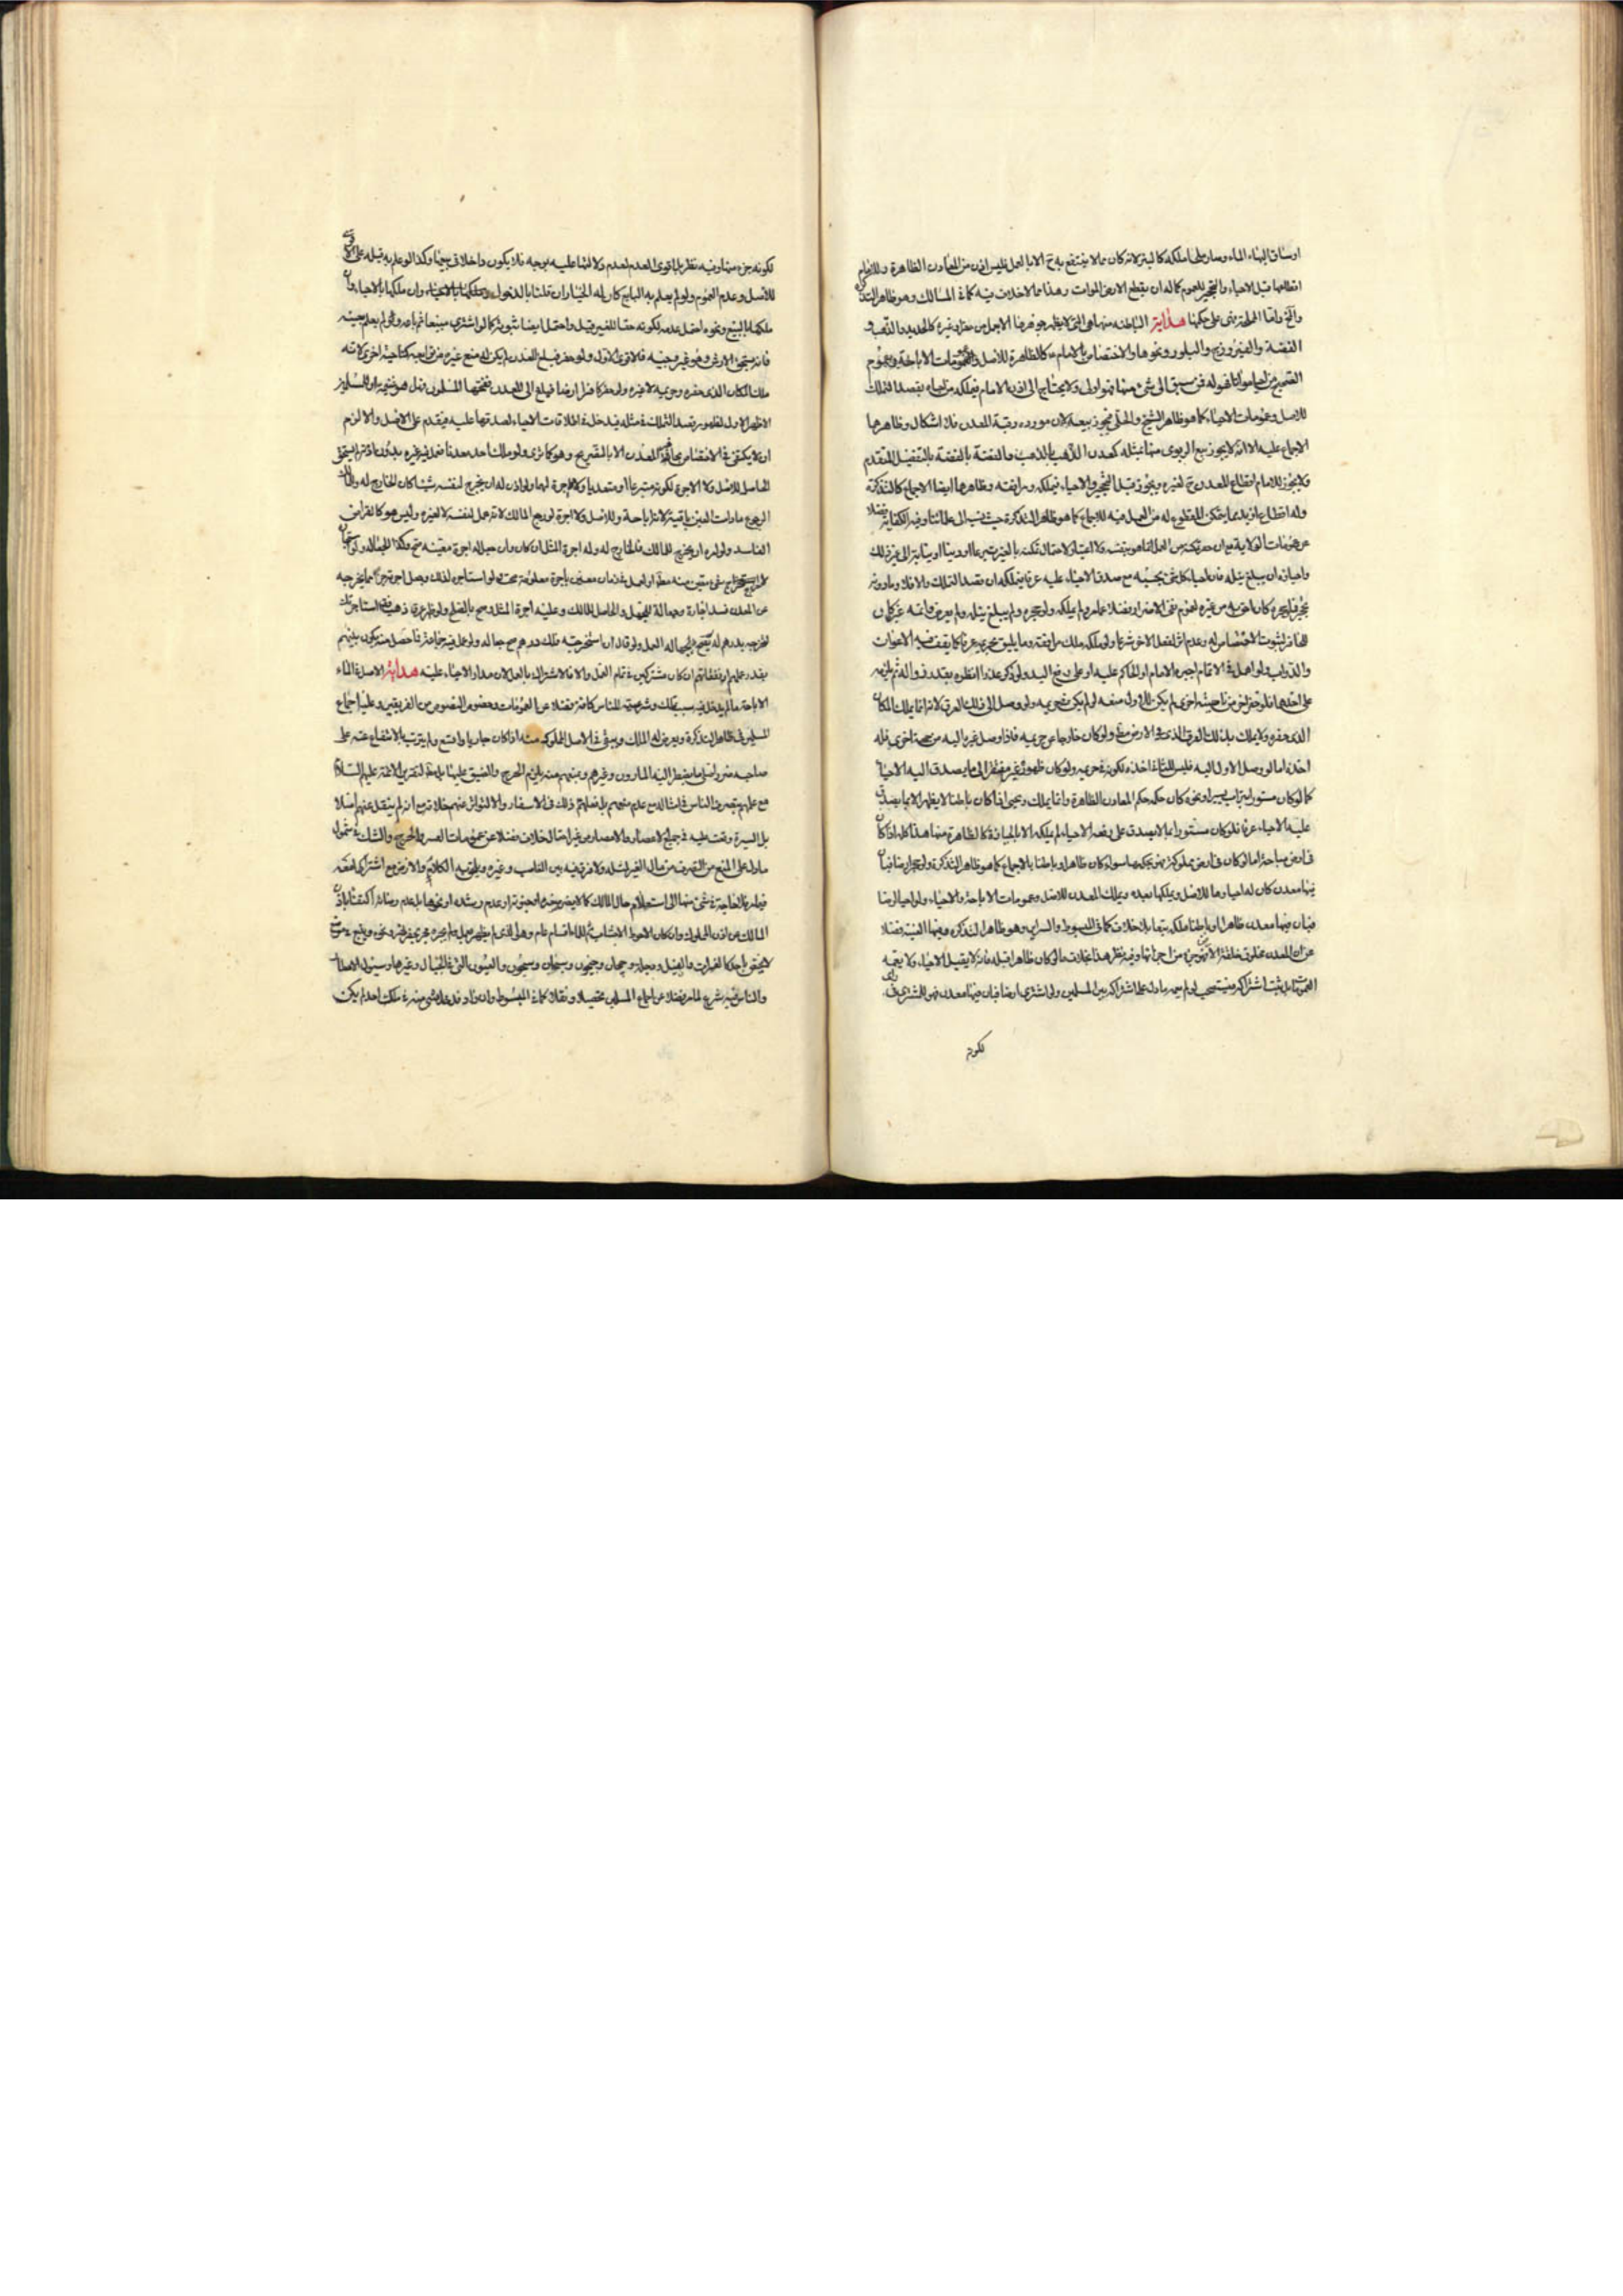 او ساق إليها الماء وصار ملحا ملكه كالبئر لانه كان مما لا ينتفع به ح الا بالعمل فليس اذن من المعادن الظاهرة وللامام
اقطاعها قبل الاحياء والتحجير للعموم كما له ان يقطع الارض الموات وهذا مما لا خلاف فيه كما في المسالك وهو ظاهر التذكرة
على حكمها هداية الباطنه منها هي التي لا يظهر جوهرها الا بعمل من نفر او غيره كالحديد والذهب و
الفضة والفيروزج والبلور ونحوها ولا اختصاص بالامام ع كالظاهرة للاصل وعمومات الاباحة وعموم
الصحيح من احيا مواتا فهو له فمن سبق الى شئ منها فهو اولى ولا يحتاج الى اذن الامام فيملكه من احياه بقصد التملك
للاصل وعمومات الاحياء كما هو ظاهر الشيخ والحلي فيجوز بيعه لان مورده رقبة المعدن فلا اشكال وظاهرها
الاجماع عليه الا انه لا يجوز بيع الربوى منها بمثله كمعدن الذهب بالذهب والفضة بالفضة بالتفصيل المتقدم
ولا يجوز للامام اقطاع المعدن ح لغيره ويجوز قبل التحجير والاحياء فيملكه ومرافقه وظاهرها ايضا الاجماع كالتذكرة
وله اقطاع ما زيد عما يتمكن المقطوع له من العمل فيه للاجماع كما هو ظاهر التذكرة حيث نسب الى علمائنا وفيه الكفاية فضلا
عن عمومات الولاية مع ان عدم تمكنه من العمل انما هو بنفسه فلا اعتبار لاحتمال تمكنه بالغير تبرعا او دينا او نيابة الى غير ذلك
واحياؤه ان يبلغ نيله فان احياء كل شئ بحسبه مع صدق الاحياء عليه عرفا فيملكه ان قصد التملك والا فلا وما دونه
تحجير فلو حجره كان احق به من غيره لعموم نفى الاضرار فضلا عما مر ولم يملكه ولو حجره ولم يبلغ نيله ولم يعرض عنه غيره كان
للحافر لثبوت الاختصاص له وعدم اثر لفعل الاخر شرعا ولو ملكه ملك مرافقه وما يليق بحريمه عرفا كما يقف فيه الاعوان
والدواب ولو اهمل في الاتمام اجبره الامام او الحاكم عليه او على رفع اليد ولو ذكر عذرا انظره بقدر زواله ثم يلزمه
على احدهما فلو حفر اخر من ناحية اخرى لم يكن للاول منعه لو لم يكن في حريمه ولو وصل الى ذلك العرق لانه انما يملك المكان
الذى حفره ولا يملك بذلك العرق الذى في الارض مطلقا ولو كان خارجا عن حريمه فاذا وصل غيره اليه من جهة اخرى فله
اخذه اما لو وصل الاول اليه فليس للثانى اخذه لكونه في حريمه ولو كان ظهوره غير مفتقر الى ما يصدق اليه الاحياء
كما لو كان مستورا بتراب يسير او نحوه كان حكمه حكم المعادن الظاهرة وانما يملك ويحيى اذا كان باطنا لا يظهر الا بما يصدق
عليه الاحياء عرفا فلو كان مستورا بما لا يصدق على رفعه الاحياء لم يملكه الا بالحيازة كالظاهرة منها هذا كله اذا كان
في ارض مباحة اما لو كان في ارض مملوكة فهو بحكمها سواء كان ظاهرا او باطنا بالاجماع كما هو ظاهر التذكرة ولو حجر ارضا فبان
فيها معدن كان له احياؤها للاصل ويملكها بعده ويملك المعدن للاصل وعمومات الاباحة والاحياء ولو احيا ارضا
فبان فيها معدن ظاهرا او باطنا ملكه تبعا بلا خلاف كما في المبسوط والسرائر وهو ظاهر التذكرة وفيها الغنية فضلا
عن ان المعدن مخلوق خلقة الارض فهو جزء من اجزائها وفيه نظر هذا بخلاف ما لو كان ظاهرا قبله فانه لا يقبل الاحياء ولا يعمه
العمومات بل ثبت اشتراكه فيستصحب لو لم يعمه ما دل على اشتراكه بين المسلمين ولو اشترى ارضا فبان فيها معدن فهو للمشترى
لكونه
لكونه جزء منها وفيه نظر بل اقوى العدم لعدم دلالتها عليه بوجه فلا يكون داخلا في بيعها وكذا لو علم به قبله على الاقوى
للاصل وعدم العموم ولو لم يعلم به البايع كان له الخيار ان قلنا بالدخول وان ملكها بالاحياء وان
ملكها بالبيع ونحوه احتمل عدمه لكونه حقا للغير قبل واحتمل ايضا ثبوته كما لو اشترى مبيعا ثم باعه ولو لم يعلم بعيبه
فانه يستحق الارش وهو غير وجيه فالاقوى الاول ولو حفر فبلغ المعدن لم يكن له منع غيره من ناحية اخرى لانه
ملك المكان الذى حفره وحريمه لا غيره ولو حفر كافر ارضا فبلغ الى المعدن ففتحها المسلمون فهل هو غنيمة او للمسلمين
الاظهر الاول لظهور قصد التملك في مثله فيدخل في اطلاقات الاحياء لصدقها عليه فيقدم على الاصل والا لزم
ان لا يكتفى في الاختصاص بالمعدن الا بالتصريح وهو كما ترى ولو ملك احد معدنا فعمل فيه غيره بدون اذنه لم يستحق
الحاصل للاصل ولا الاجرة لكونه متبرعا او متعديا ولا اجرة لهما ولو اذن له ان يخرج لنفسه شيئا كان الخارج له وللمالك
الرجوع ما دامت العين باقية لانها اباحة وللاصل ولا اجرة لو رجع المالك لانه عمل لنفسه لا لغيره وليس هو كالقراض
الفاسد ولو امره ان يخرج للمالك فالخارج له وله اجرة المثل ان كان وان جعل له اجرة معينه صح وكذا الجعالة ولو استاجره
شئ معين منه معلوم او لعمل في زمان معين باجرة معلومة صحت ولو استاجره لذلك وجعل اجرته جزءا مما يخرجه
من المعدن فسد اجارة وجعالة للجهل والحاصل للمالك وعليه اجرة المثل وصح بالصلح ولو ظهر عرق ذهب فقال استاجرتك
لتخرجه بدرهم لم يصح للجهالة العمل ولو قال ان استخرجته فلك درهم صح جعالة ولو عمل فيه جماعة فما حصل منه يكون بينهم
بقدر عملهم او نفقاتهم ان كان مشتركين في تمام العمل والا فالاشتراك بالعمل لان مدار الاحياء عليه هداية الاصل في الماء
الاباحة ما لم يدخل فيه سبب تملك وشرعيته للناس كافة فضلا عن العمومات وخصوص النصوص من الفريقين وعليه اجماع
المسلمين في ظاهر التذكرة ويعرض له الملك ويبقى في الاصل المملوك منه اذا كان جاريا واقع ولم يترتب بالانتفاع عنه على
صاحبه ضرر اصلي ما يضطر اليه المارون وغيرهم وبمنعهم منه يلزم الحرج والضيق عليهما بل هو لتقرير الائمة عليهم السلام
مع علمهم بتصرف الناس في امثاله مع عدم منعهم بل فعلهم ذلك في الاسفار والا لتواتر عنهم خلافه مع انه لم ينقل عنهم اصلا
بل السيرة وقعت عليه في جميع الاعصار والامصار من غير احتمال خلاف فضلا عن عمومات العسر والحرج والشك في شمول
ما دل على المنع من التصرف من مال الغير لمثله ولا فرق فيه بين الغاصب وغيره ويلحق به الكلاء والارض مع اشتراكه لعله
فيما مر بالحاجة في شئ منها الى استعلام حال المالك ككونه او عدم رشده او نحوها بل عدم رضائه اكتفاء باذن
المالك من اذن الملوك وان كان الاحوط الاجتناب ثم الماء اقسام عام وهو الذى لم يظهر بعمل ولم يجره بحريمه نفر ونحوه وينبع في موضع
لا يختص باحد كالفرات والنيل ودجلة وجيحان وجيحون وسيحان وسيحون والعيون التي في الجبال وغيرها وسيول الامطار
والناس فيه شرع لما مر فضلا عن اجماع المسلمين تحصيلا ونقلا كما في المبسوط وان زاد ودخل شئ منه في ملك احد لم يكن